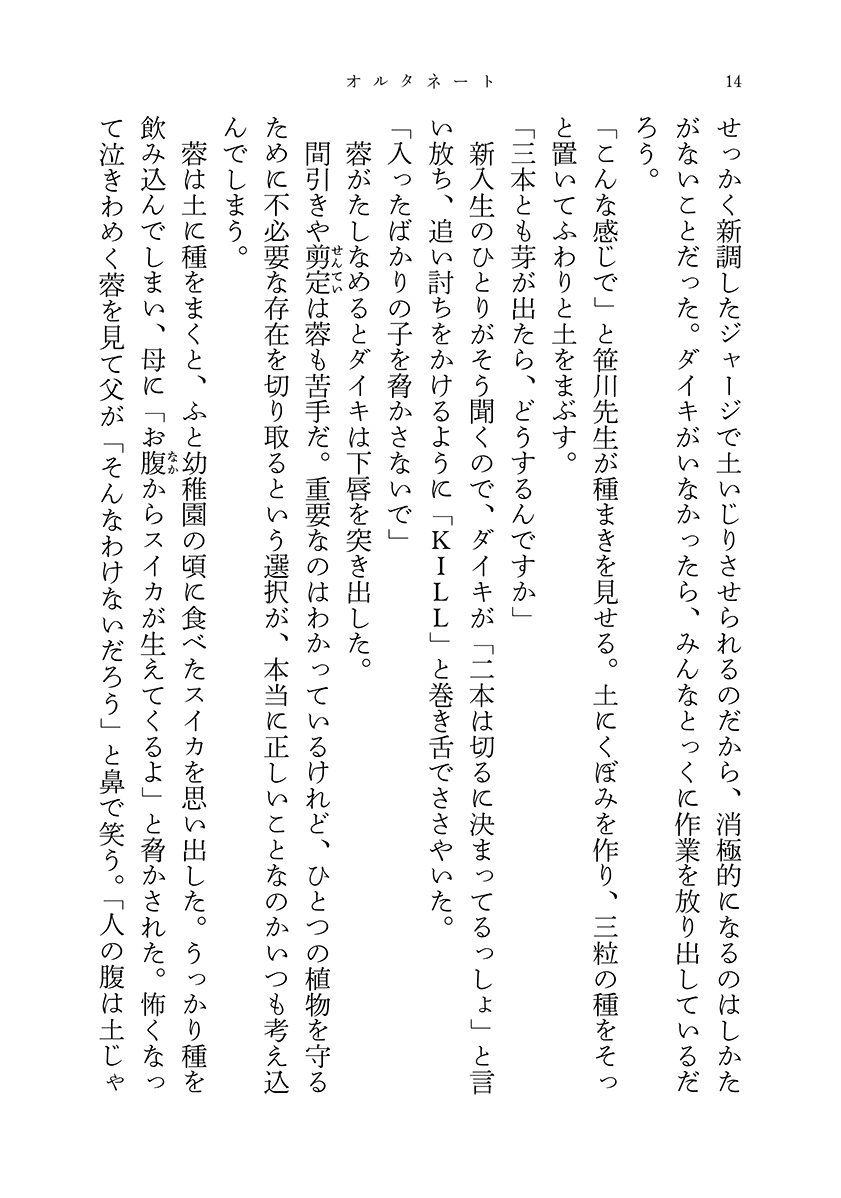 オルタネート
14
せっかく新調したジャージで土いじりさせられるのだから、消極的になるのはしかた
がないことだった。ダイキがいなかったら、みんなとっくに作業を放り出しているだ
ろう。
「こんな感じで」と笹川先生が種まきを見せる。土にくぼみを作り、三粒の種をそっ
と置いてふわりと土をまぶす。
「三本とも芽が出たら、どうするんですか」
新入生のひとりがそう聞くので、ダイキが「二本は切るに決まってるっしょ」と言
い放ち、追い討ちをかけるように「KILL」と巻き舌でささやいた。
「入ったばかりの子を脅かさないで」
蓉がたしなめるとダイキは下唇を突き出した。
間引きや剪定せんていは蓉も苦手だ。重要なのはわかっているけれど、ひとつの植物を守る
ために不必要な存在を切り取るという選択が、本当に正しいことなのかいつも考え込
んでしまう。
蓉は土に種をまくと、ふと幼稚園の頃に食べたスイカを思い出した。うっかり種を
飲み込んでしまい、母に「お腹なかからスイカが生えてくるよ」と脅かされた。怖くなっ
て泣きわめく蓉を見て父が「そんなわけないだろう」と鼻で笑う。「人の腹は土じゃ